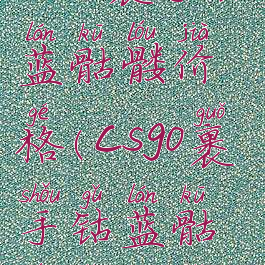 lán kū lóu jià
蓝骷髅价
gé guǒ
格(CSgo裹
shǒu gǔ lán kū
手钴蓝骷